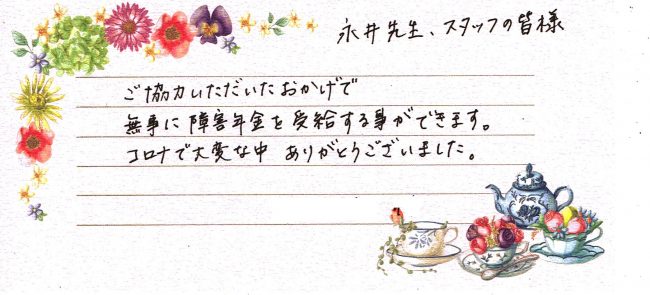 永井先生、スタッフの皆様
ご協力いただいたおかげで
無事に障害年金を受給する事ができます。
コロナで大変な中 ありがとうございました。